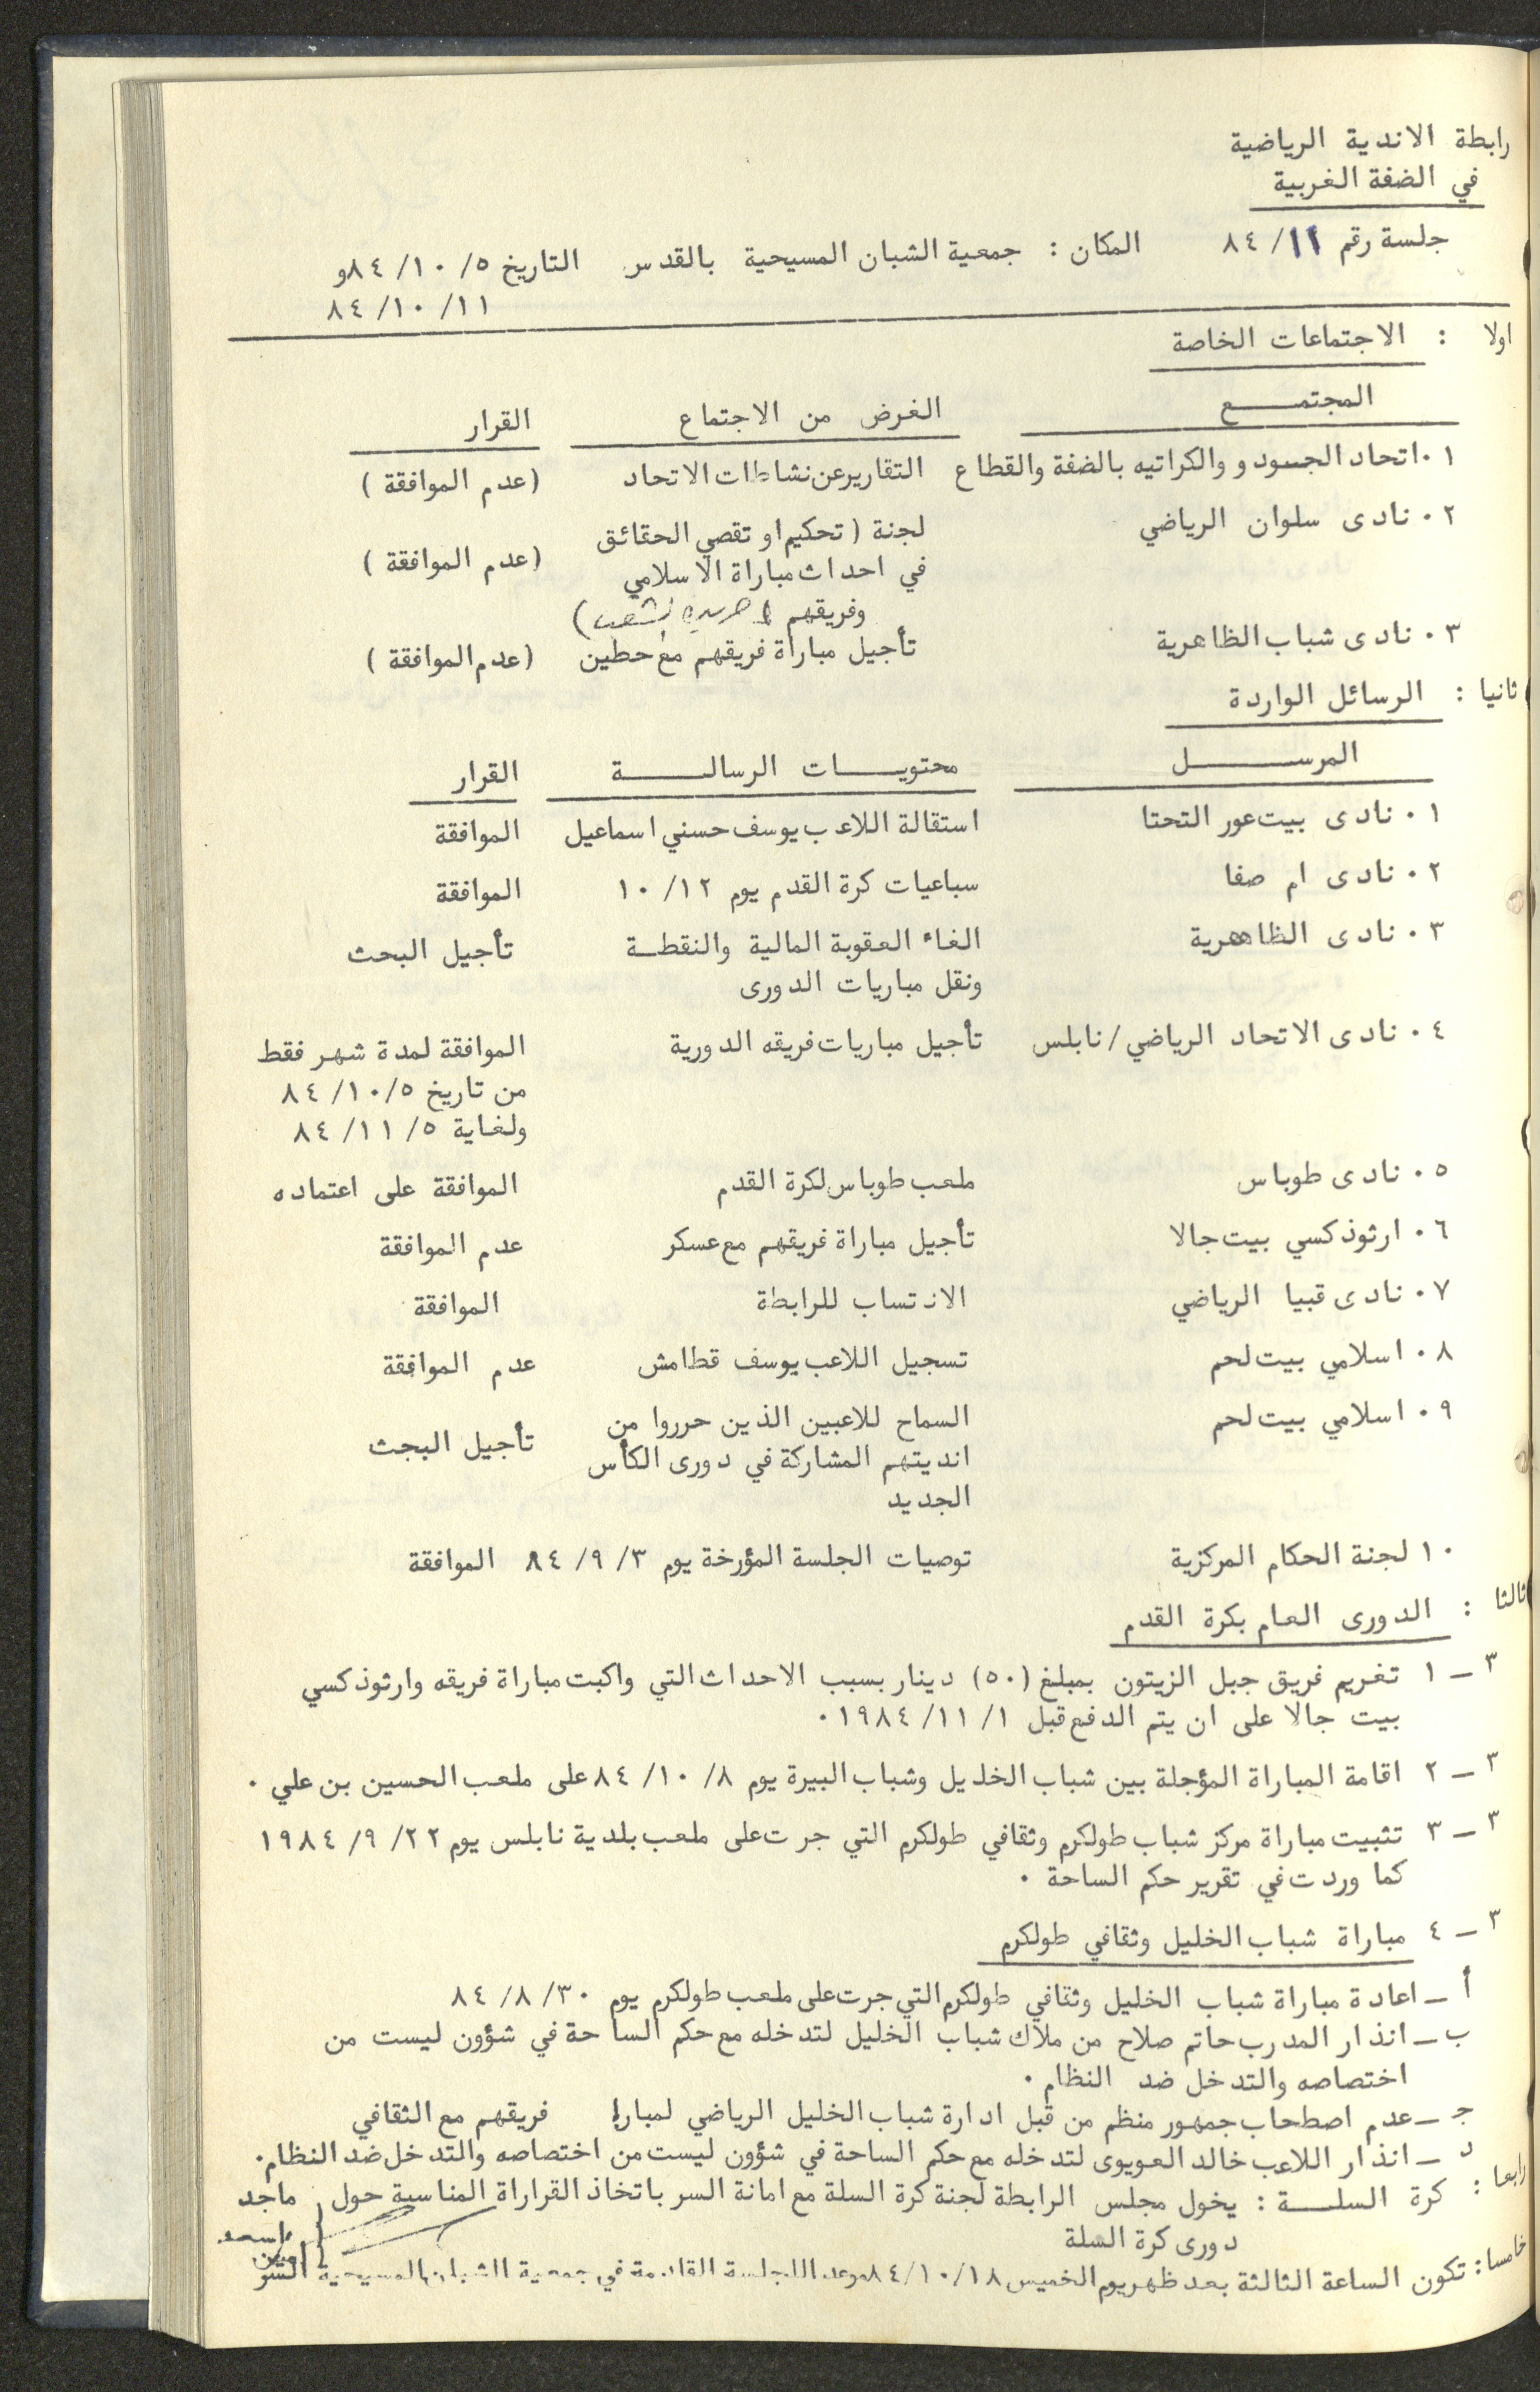 رابطة الاندية الرياضية
في الضفة الغربية
جلسة رقم ١١/ ٨٤ المكان : جمعية الشبان المسيحية بالقدس التاريخ ٥/ ١٠/ ٨٤و
١١/ ١٠/ ٨٤
اولا : الاجتماعات الخاصة
المجتمــــــع الغرض من الاجتماع القرار
١٠ اتحاد الجسودو والكراتيه بالضفة والقطاع التقارير عن نشاطات الاتحاد (عدم الموافقة )
٢٠ نادى سلوان الرياضي لجنة ( تحكيم او تقصي الحقائق
في احداث مباراة الاسلامي (عدم الموافقة )
وفريقهم
٣٠ نادى شباب الظاهرية تأجيل مباراة فريقهم مع حطين (عدم الموافقة )
ثانيا : الرسائل الواردة
المرســــــــل محتويــــات الرسالــــــة القرار
١٠ نادى بيت عور التحتا استقالة اللاعب يوسف حسني اسماعيل الموافقة
٢٠ نادى ام صفا سباعيات كرة القدم يوم ١٢/ ١٠ الموافقة
٣٠ نادى الظاهرية الغاء العقوبة المالية والنقطــة تأجيل البحث
ونقل مباريات الدورى
٤٠ نادى الاتحاد الرياضي/ نابلس تأجيل مباريات فريقه الدورية الموافقة لمدة شهر فقط
من تاريخ ٥/ ١٠/ ٨٤
ولغاية ٥/ ١١/ ٨٤
٥٠ نادى طوباس ملعب طوباس لكرة القدم الموافقة على اعتماده
٦٠ ارثوذكسي بيت جالا تأجيل مباراة فريقهم مع عسكر عدم الموافقة
٧٠ نادى قبيا الرياضي الانتساب للرابطة الموافقة
٨٠ اسلامي بيت لحم تسجيل اللاعب يوسف قطامش عدم الموافقة
٩٠ اسلامي بيت لحم السماح للاعبين الذين حرروا من
انديتهم المشاركة في دورى الكأس تأجيل البحث
الجديد
١٠ لجنة الحكام المركزية توصيات الجلسة المؤرخة يوم ٣/ ٩/ ٨٤ الموافقة
ثالثا : الدورى العام بكرة القدم
٣ ــ ١ تغريم فريق جبل الزيتون بمبلغ (٥٠) دينار بسبب الاحداث التي واكبت مباراة فريقه وارثوذكسي
بيت جالا على ان يتم الدفع قبل ١/ ١١/ ١٩٨٤ ٠
٣ ــ ٢ اقامة المباراة المؤجلة بين شباب الخليل وشباب البيرة يوم ٨/ ١٠/ ٨٤ على ملعب الحسين بن علي ٠
٣ ــ ٣ تثبيت مباراة مركز شباب طولكرم وثقافي طولكرم التي جرت على ملعب بلدية نابلس يوم ٢٢/ ٩/ ١٩٨٤
كما وردت في تقرير حكم الساحة ٠
٣ ــ ٤ مباراة شباب الخليل وثقافي طولكرم
أ ــ اعادة مباراة شباب الخليل وثقافي طولكرم التي جرت على ملعب طولكرم يوم ٣٠/ ٨/ ٨٤
ب ــ انذار المدرب حاتم صلاح من ملاك شباب الخليل لتدخله مع حكم الساحة في شؤون ليست من
اختصاصه والتدخل ضد النظام ٠
جـ ــ عدم اصطحاب جمهور منظم من قبل ادارة شباب الخليل الرياضي لمبارا فريقهم مع الثقافي
د ــ انذار اللاعب خالد العويوى لتدخله مع حكم الساحة في شؤون ليست من اختصاصه والتدخل ضد النظام٠
رابعا : كرة السلــــة : يخول مجلس الرابطة لجنة كرة السلة مع امانة السر باتخاذ القراراة المناسبة حول ماجد
دورى كرة السلة اسعد
خامسا: تكون الساعة الثالثة بعد ظهر يوم الخميس ١٨/ ١٠/ ٨٤ موعد اللجلسة القادمة في جمعية الشبان المسيحية
امين السر